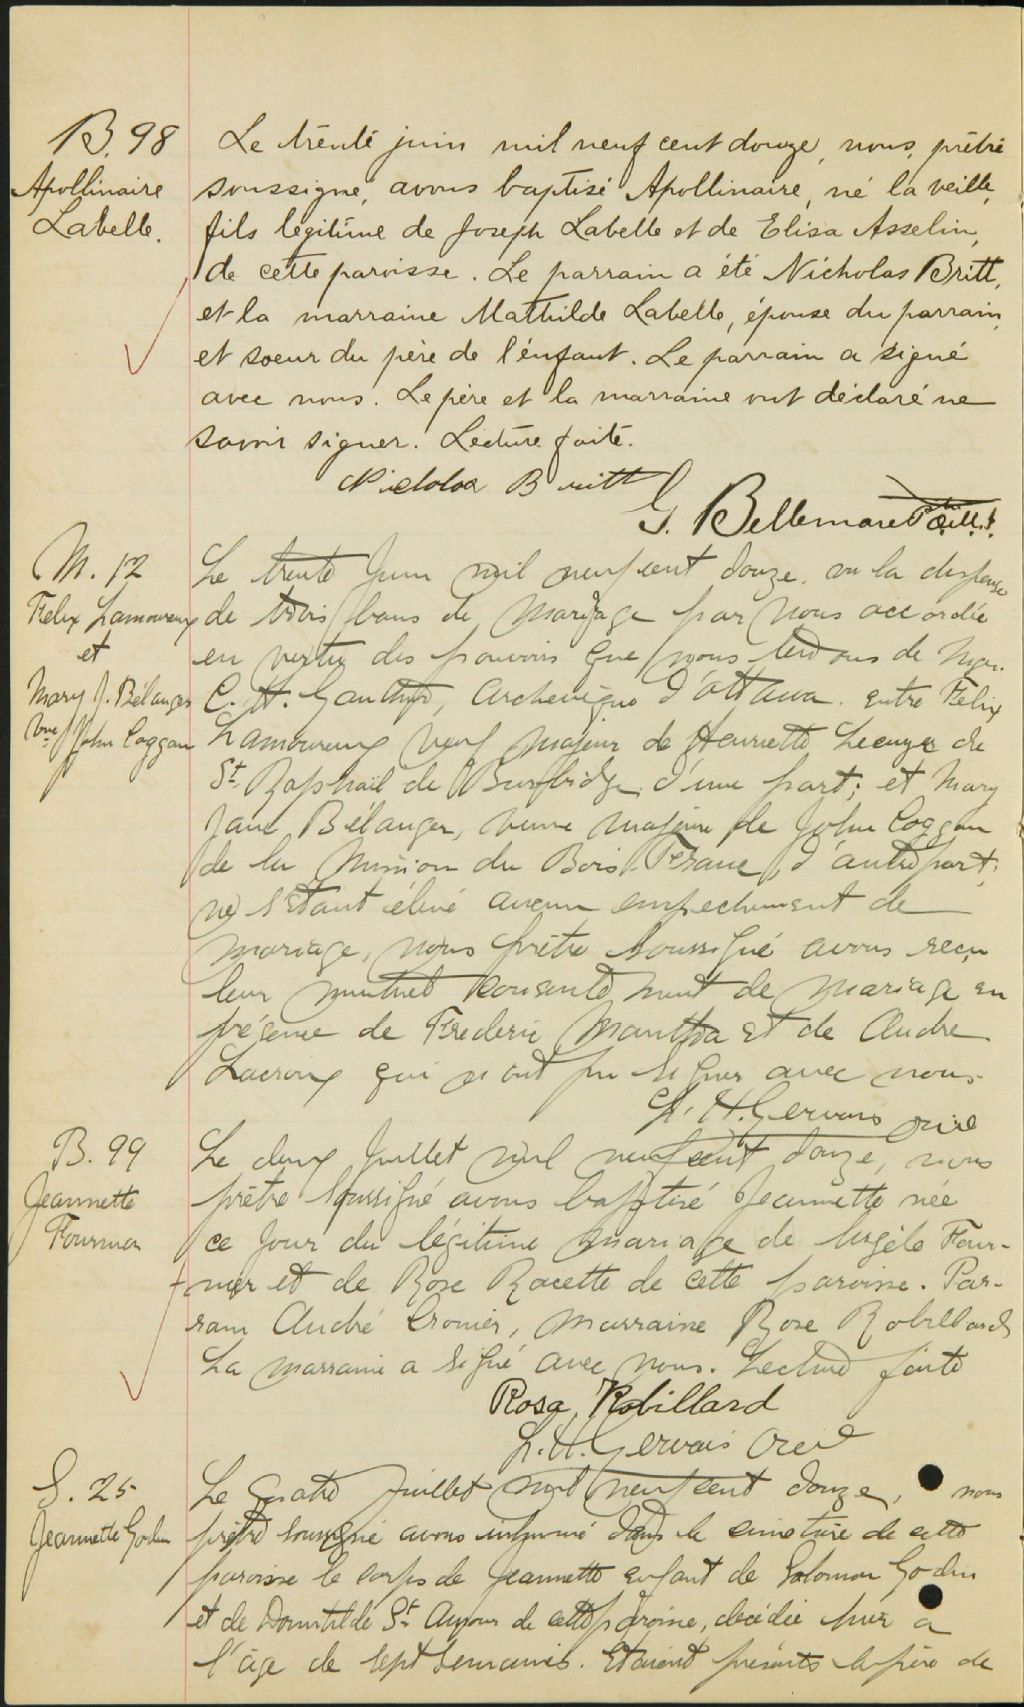 B. 98
Apollinaire
Labelle.
Le trente juin mil neuf cent douze, nous, prêtre
soussigné, avons baptisé Apollinaire, né la veille,
fils légitime de Joseph Labelle et de Elisa Asselin,
de cette paroisse. Le parrain a été Nicholas Britt,
et la marraine Mathilde Labelle, épouse du parrain,
et soeur du père de l'enfant. Le parrain a signé
avec nous. Le père et la marraine ont déclaré ne
savoir signer. Lecture faite.
Nicholas Britt
G. Bellemare Ptre
M. 12
Felix Lamoureux
et
Mary J. Bélanger
Vve John Coggan
Le trente Juin mil neuf cent douze, vu la dispense
de trois bans de mariage par nous accordée
en vertu des pouvoirs que nous tenons de Mgr.
C. H. Gauthier, Archevêque d'Ottawa. entre Felix
Lamoureux veuf majeur de Henriette Lecuyer de
St. Raphaël de Burbidge, d'une part; et Mary
Jane Bélanger, veuve majeure de John Coggan
de la Mission du Bois Franc, d'autre part;
ne s'étant élevé aucun empechement de
mariage, nous prêtre soussigné avons reçu
leur mutuel consentement de mariage en
présence de Frederic Mantha et de Andre
Lacroix qui n'ont pu signer avec nous.
L. H. Gervais Curé
B. 99
Jeannette
Fournier
Le deux Juillet mil neuf cent douze, nous
prêtre soussigné avons baptisé Jeannette née
ce jour du légitime mariage de Four-
nier et de Rose Racette de cette paroisse. Par-
rain André Cronier, Marraine Rose Robillard
La marraine a signé avec nous. Lecture faite
Rosa Robillard
L. H. Gervais Curé
S. 25
Jeannette Godin
Le quatre Juillet mil neuf cent douze, nous
prêtre soussigné avons inhumé dans le cimetière de cette
paroisse le corps de Jeannette enfant de Solomon Godin
et de Domitilde St. Amour de cette paroisse, décédée hier à
l'âge de sept semaines. Etaient présents le père de